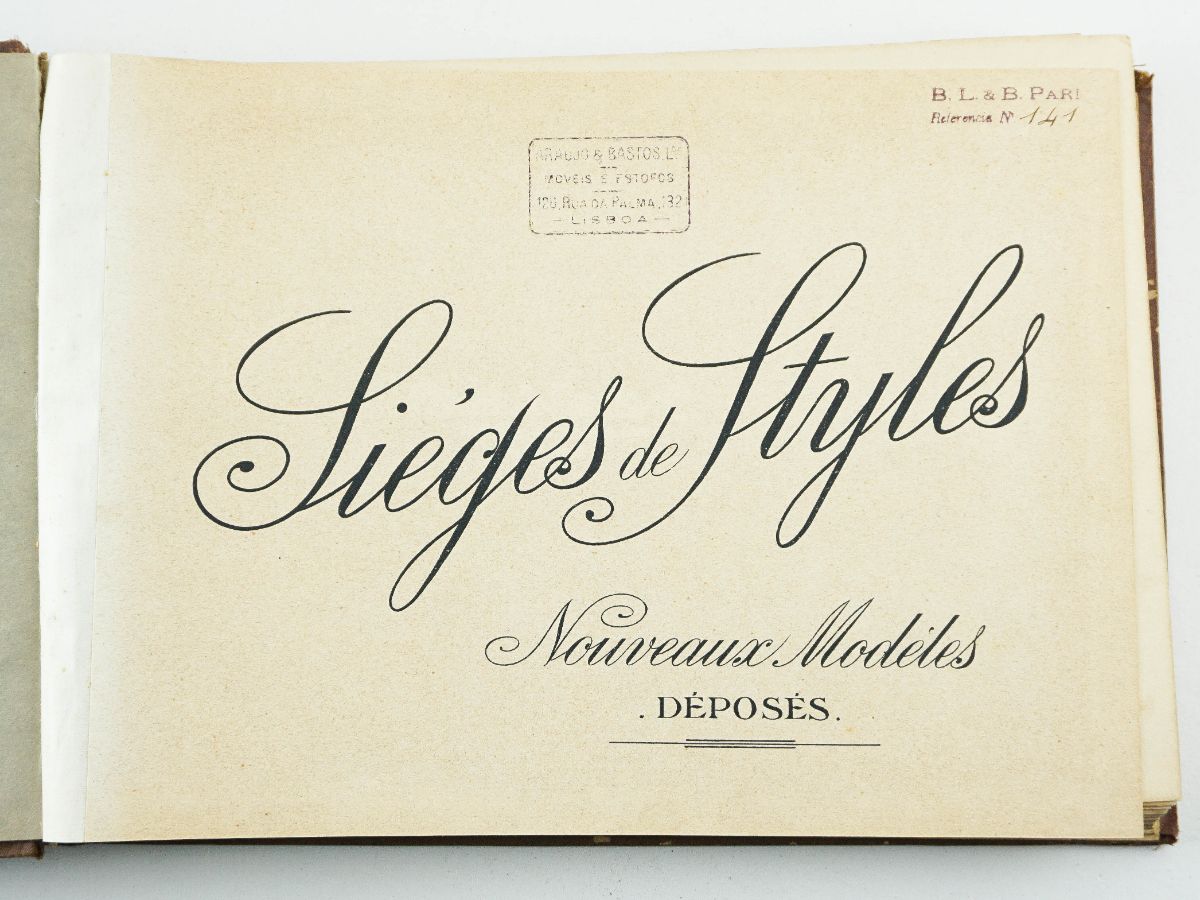 B. L. & B. PARI
Referencia Nº 141
ARAUJO & BASTOS, Lda
MOVEIS E ESTOFOS
126, RUA DA PALMA, 132
— LISBOA —
Siéges de Styles
Nouveaux Modéles
. DÉPOSÉS.